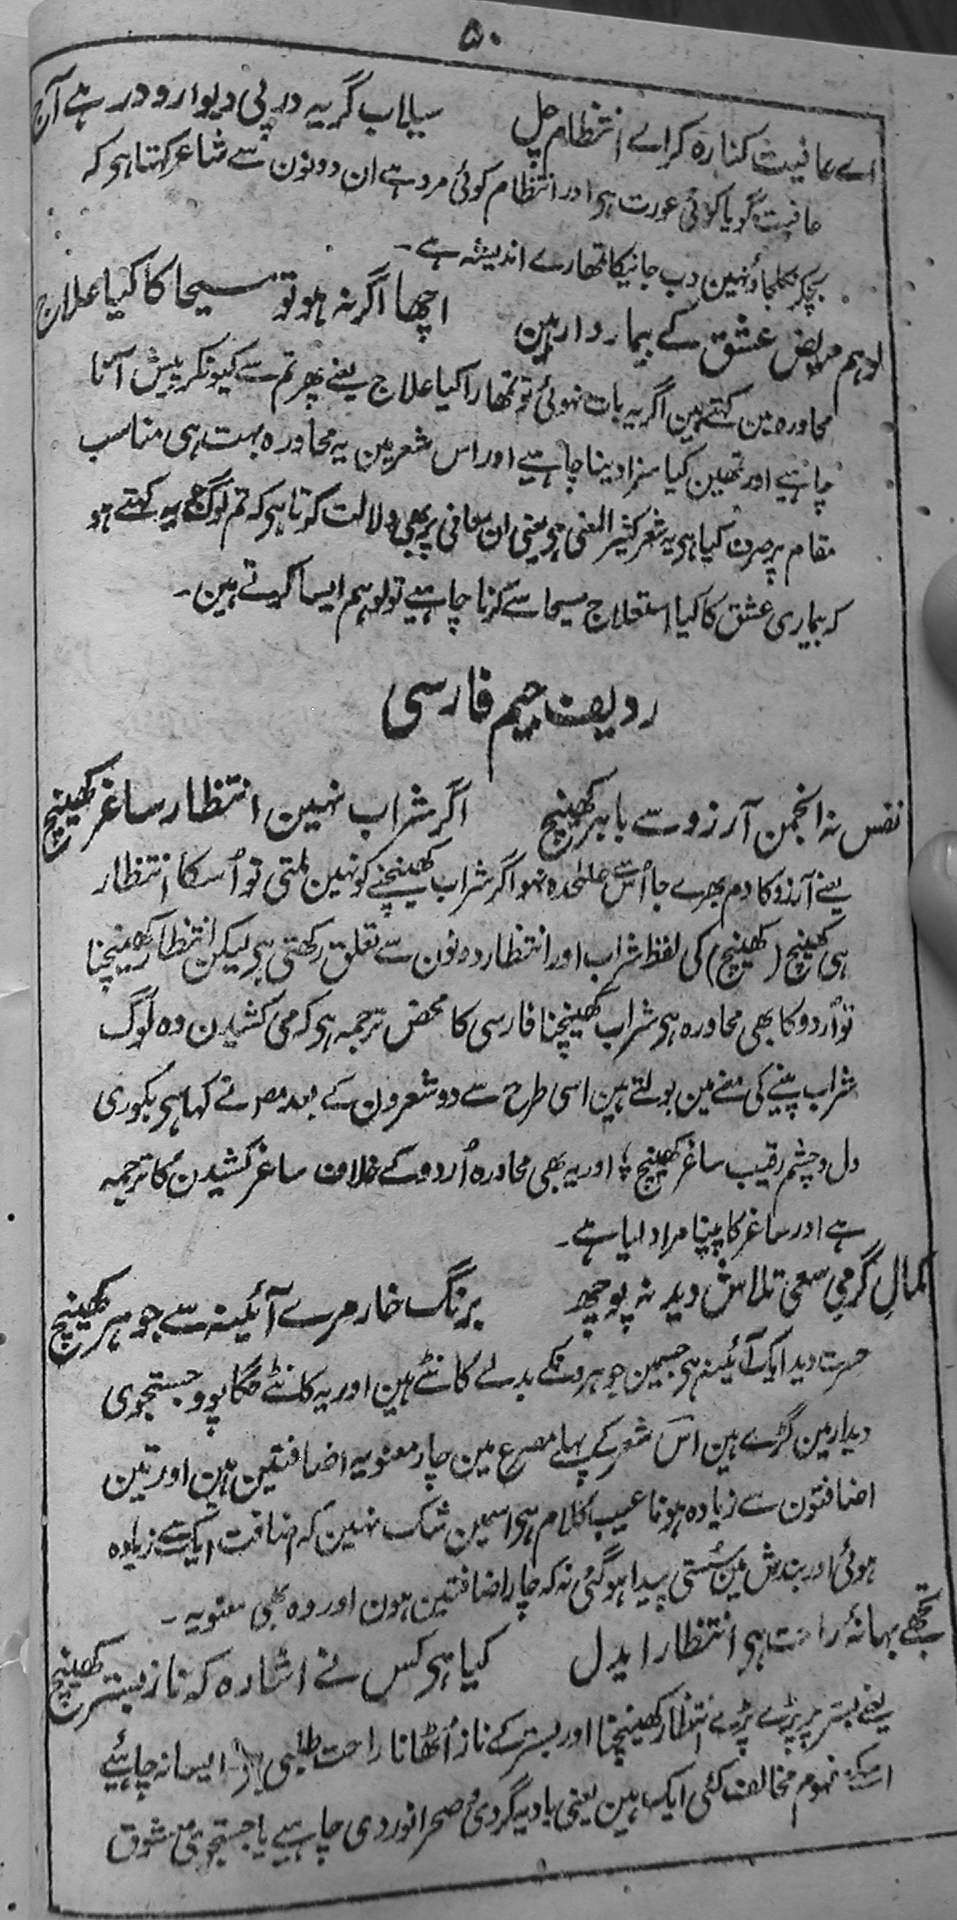 ۵۰
اے عافیت کنارہ کر اے انتظام چل سیلاب گریہ در پی دیوار و در ہے آج
عافیت گویا کوئی عورت ہی اور انتظام کوئی مرد ہے ان دونون سے شاعر کہتا ہی کہ
بچکر نکلجاؤ نہین دب جانیکا تمھارے اندیشہ ہے۔
لو ہم مریض عشق کے بیمار دار ہین اچھا اگر نہ ہو تو مسیحا کا کیا علاج
محاورہ مین کہتے ہین اگر یہ بات نہوئی تو تمھارا کیا علاج یعنے پھر تم سے کیونکر پیش آنا
چاہیے اور تمھین کیا سزا دینا چاہیے اور اس شعر مین یہ محاورہ بہت ہی مناسب
مقام پر صرف کیا ہی یہ شعر کثیر المعنی ہی یعنی ان معانی پر بھی دلالت کرتا ہی کہ تم لوگ یہ کہتے ہو
کہ بیماری عشق کا کیا استعلاج مسیحا سے کرنا چاہیے تو لو ہم ایسا کرتے ہین۔
ردیف جیم فارسی
نفس نہ انجمن آرزو سے باہر کھینچ اگر شراب نہین انتظار ساغر کھینچ
یعنے آرزو کا دم بھرے جا اُس سے علٰحدہ نہو اگر شراب کھینچنے کو نہین ملتی تو اُسکا انتظار
ہی کھینچ (کھینچ) کی لفظ شراب اور انتظار دونون سے تعلق رکھتی ہی لیکن انتظار کھینچنا
تو اُردو کا بھی محاورہ ہی شراب کھینچنا فارسی کا محض ترجمہ ہی کہ می کشیدن وہ لوگ
شراب پینے کی معنے مین بولتے ہین اسی طرح سے دو شعرون کے بعد مصر نے کہا ہی بکوری
دل و چشم رقیب ساغر کھینچ ؛ اور یہ بھی محاورہ اُردو کے خلاف ساغر کشیدن کا ترجمہ
ہے اور ساغر کا پینا مراد لیا ہے۔
کمالِ گرمیِ سعیِ تلاشِ دید نہ پوچھ برنگ خار مرے آئینہ سے جوہر کھینچ
حسرت دید ایک آئینہ ہی جسمین جوہرونکے بدلے کانٹے ہین اور یہ کانٹے تگاپو و جستجوی
دیدار مین گڑے ہین اس شعر کے پہلے مصرع مین چار معنویہ اضافتین ہین اور تین
اضافتون سے زیادہ ہونا عیب کلام ہی اسمین شک نہین کہ اضافت ایک سے زیادہ
ہوئی اور بندش مین سُستی پیدا ہوگئی نہ کہ چار اضافتین ہون اور وہ بھی معنویہ۔
تجھے بہانۂ راحت ہی انتظار ایدل کیا ہی کس نے اشارہ کہ ناز بستر کھینچ
یعنے بستر پر پڑے پڑے انتظار کھینچنا اور بستر کے ناز اُٹھانا راحت طلبی ہی ایسا نہ چاہیئے
اسکے مفہوم مخالف کئی ایک ہین یعنی بادیہ گردی و صحرا نوردی چاہیے یا جستجوی معشوق